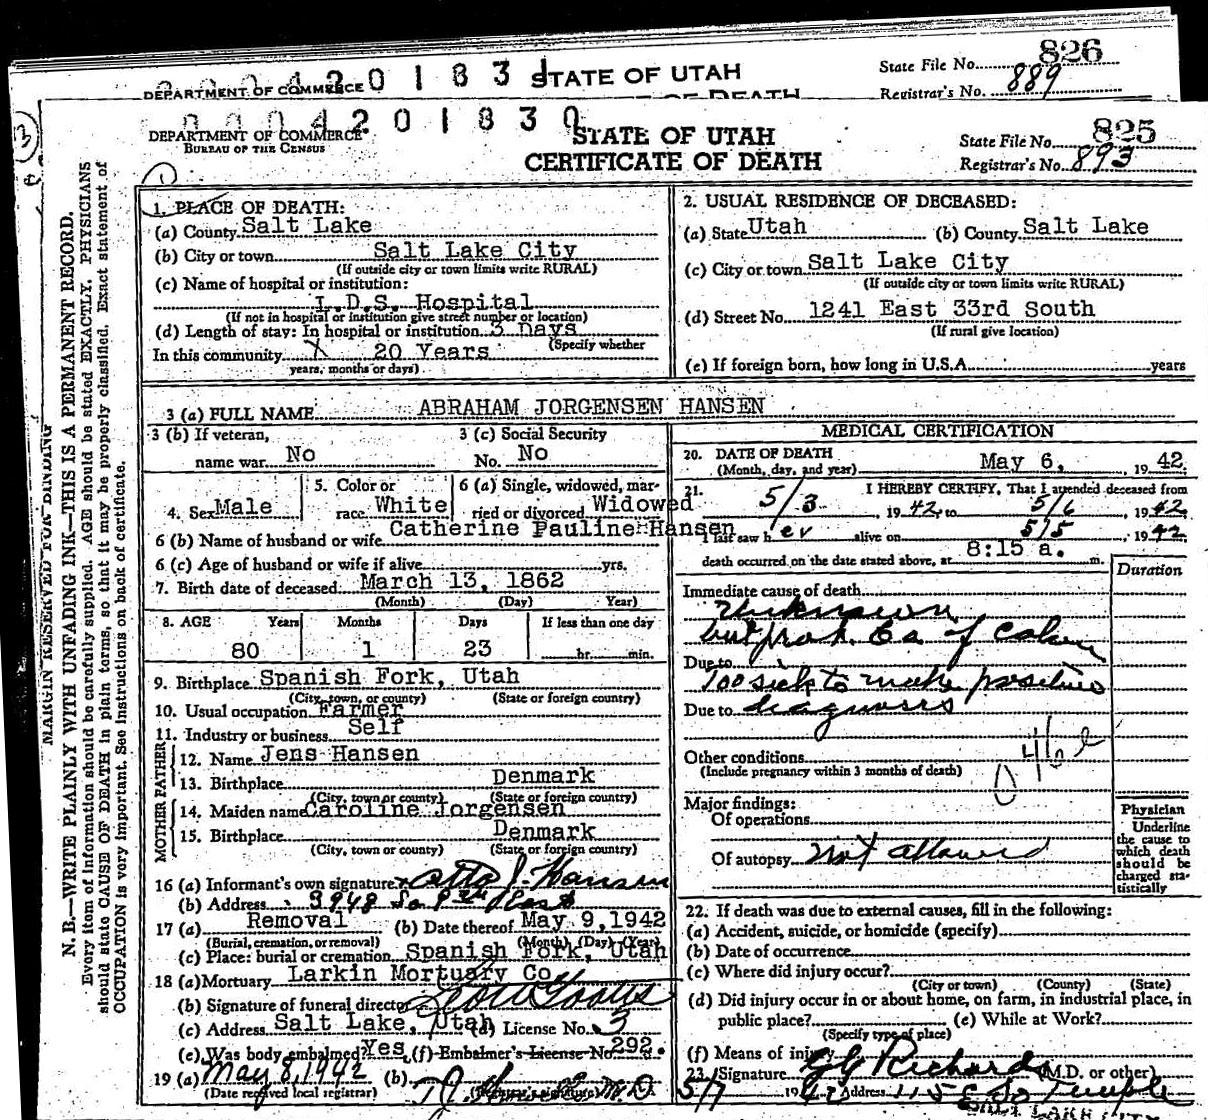 826
0 0 0 4 2 0 1 8 3 1 STATE OF UTAH State File No.
DEPARTMENT OF COMMERCE OF DEATH Registrar's No. 889
0 0 0 4 2 0 1 8 3 0
DEPARTMENT OF COMMERCE STATE OF UTAH State File No. 825
BUREAU OF THE CENSUS CERTIFICATE OF DEATH Registrar's No. 893
MARGIN RESERVED FOR BINDING
N. B.—WRITE PLAINLY WITH UNFADING INK—THIS IS A PERMANENT RECORD.
Every item of information should be carefully supplied. AGE should be stated EXACTLY. PHYSICIANS
should state CAUSE OF DEATH in plain terms, so that it may be properly classified. Exact statement of
OCCUPATION is very important. See instructions on back of certificate.
1. PLACE OF DEATH:
(a) County Salt Lake
(b) City or town Salt Lake City
(If outside city or town limits write RURAL)
(c) Name of hospital or institution:
L.D.S. Hospital
(If not in hospital or institution give street number or location)
(d) Length of stay: In hospital or institution 3 Days
(Specify whether
In this community X 20 Years
years, months or days)
2. USUAL RESIDENCE OF DECEASED:
(a) State Utah (b) County Salt Lake
(c) City or town Salt Lake City
(If outside city or town limits write RURAL)
(d) Street No. 1241 East 33rd South
(If rural give location)
(e) If foreign born, how long in U.S.A. years
3 (a) FULL NAME ABRAHAM JORGENSEN HANSEN
3 (b) If veteran, 3 (c) Social Security
name war No No. No
4. Sex Male 5. Color or race White 6 (a) Single, widowed, married or divorced Widowed
6 (b) Name of husband or wife Catherine Pauline Hansen
6 (c) Age of husband or wife if alive yrs.
7. Birth date of deceased March 13, 1862
(Month) (Day) Year)
8. AGE Years Months Days If less than one day
80 1 23 hr. min.
9. Birthplace Spanish Fork, Utah
(City, town, or county) (State or foreign country)
10. Usual occupation Farmer
11. Industry or business Self
FATHER
12. Name Jens Hansen
13. Birthplace Denmark
(City, town or county) (State or foreign country)
MOTHER
14. Maiden name Caroline Jorgensen
15. Birthplace Denmark
(City, town or county) (State or foreign country)
16 (a) Informant's own signature Otto J. Hansen
(b) Address 3948 So 9th East
17 (a) Removal (b) Date thereof May 9, 1942
(Burial, cremation, or removal) (Month) (Day) (Year)
(c) Place: burial or cremation Spanish Fork, Utah
18 (a) Mortuary Larkin Mortuary Co
(b) Signature of funeral director
(c) Address Salt Lake, Utah (d) License No. 3
(e) Was body embalmed? Yes (f) Embalmer's License No. 292
19 (a) May 8, 1942 (b) M.D
(Date received local registrar) (Registrar's signature)
MEDICAL CERTIFICATION
20. DATE OF DEATH
(Month, day, and year) May 6, 1942
21. I HEREBY CERTIFY, That I attended deceased from
5/3, 1942, to 5/6, 1942
I last saw her alive on 5/5, 1942
death occurred on the date stated above, at 8:15 a. m.
Duration
Immediate cause of death
Unknown
but prob. Ca. of Colon
Due to
Too sick to make positive
Due to diagnosis
Other conditions
(Include pregnancy within 3 months of death)
Major findings:
Of operations
Of autopsy not allowed
Physician
Underline
the cause to
which death
should be
charged sta-
tistically
22. If death was due to external causes, fill in the following:
(a) Accident, suicide, or homicide (specify)
(b) Date of occurrence
(c) Where did injury occur?
(City or town) (County) (State)
(d) Did injury occur in or about home, on farm, in industrial place, in
public place? (e) While at Work?
(Specify type of place)
(f) Means of injury
23. Signature G G Richards (M.D. or other)
5/7 1942 Address 115 E So Temple
SALT LAKE CITY